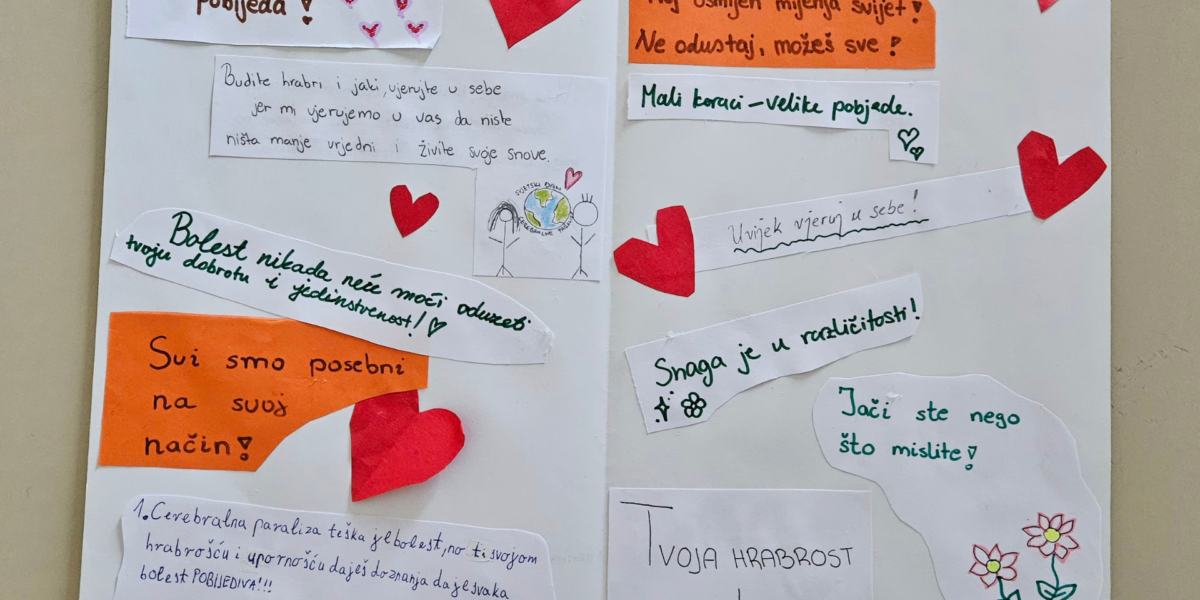 pobijeda!
Budite hrabri i jaki, vjerujte u sebe
jer mi vjerujemo u vas da niste
ništa manje vrjedni i živite svoje snove.
SVJETSKI DAN
CEREBRALNE
Bolest nikada neće moći oduzeti
tvoju dobrotu i jedinstvenost!
Svi smo posebni
na svoj
način!
1. Cerebralna paraliza teška je bolest, no ti svojom
hrabrošću i upornošću daješ do znanja da je svaka
bolest POBIJEDIVA!!!
Tvoj osmijeh mijenja svijet!
Ne odustaj, možeš sve!
Mali koraci – velike pobjede.
Uvijek vjeruj u sebe!
Snaga je u različitosti!
Jači ste nego
što mislite!
TVOJA HRABROST